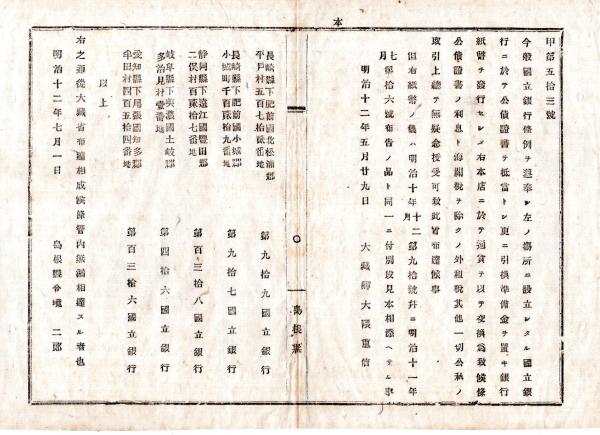 本
甲第五拾三號
今般國立銀行條例ヲ遵奉シ左ノ場所ニ設立シタル國立銀
行ニ於テ公債證書ヲ抵當トシ更ニ引換準備金ヲ置キ銀行
紙幣ヲ發行セシメ右本店ニ於テ通貨ヲ以テ交換為致候條
公債證書ノ利息ト海關稅ヲ除クノ外租稅其他一切公私ノ
取引上總テ無疑念授受可致此旨布達候事
但右紙幣ノ儀ハ明治十年十二月第九拾號幷ニ明治十一年
七月第拾六號布告ノ品ト同一ニ付別段見本相添ヘサル事
明治十二年五月廿九日
大藏卿大隈重信
島根縣
長崎縣下肥前國北松浦郡平戶村五百七拾番地
第九拾九國立銀行
長崎縣下肥前國小城郡小城町千百拾九番地
第九拾七國立銀行
靜岡縣下遠江國豐田郡二俣村百拾七番地
第百三拾八國立銀行
岐阜縣下美濃國土岐郡多治見村壹番地
第四拾六國立銀行
愛知縣下尾張國知多郡半田村四百五拾四番地
第百三拾六國立銀行
以上
右之通從大藏省布達相成候條管內無漏相達スル者也
明治十二年七月一日
島根縣令境二郎